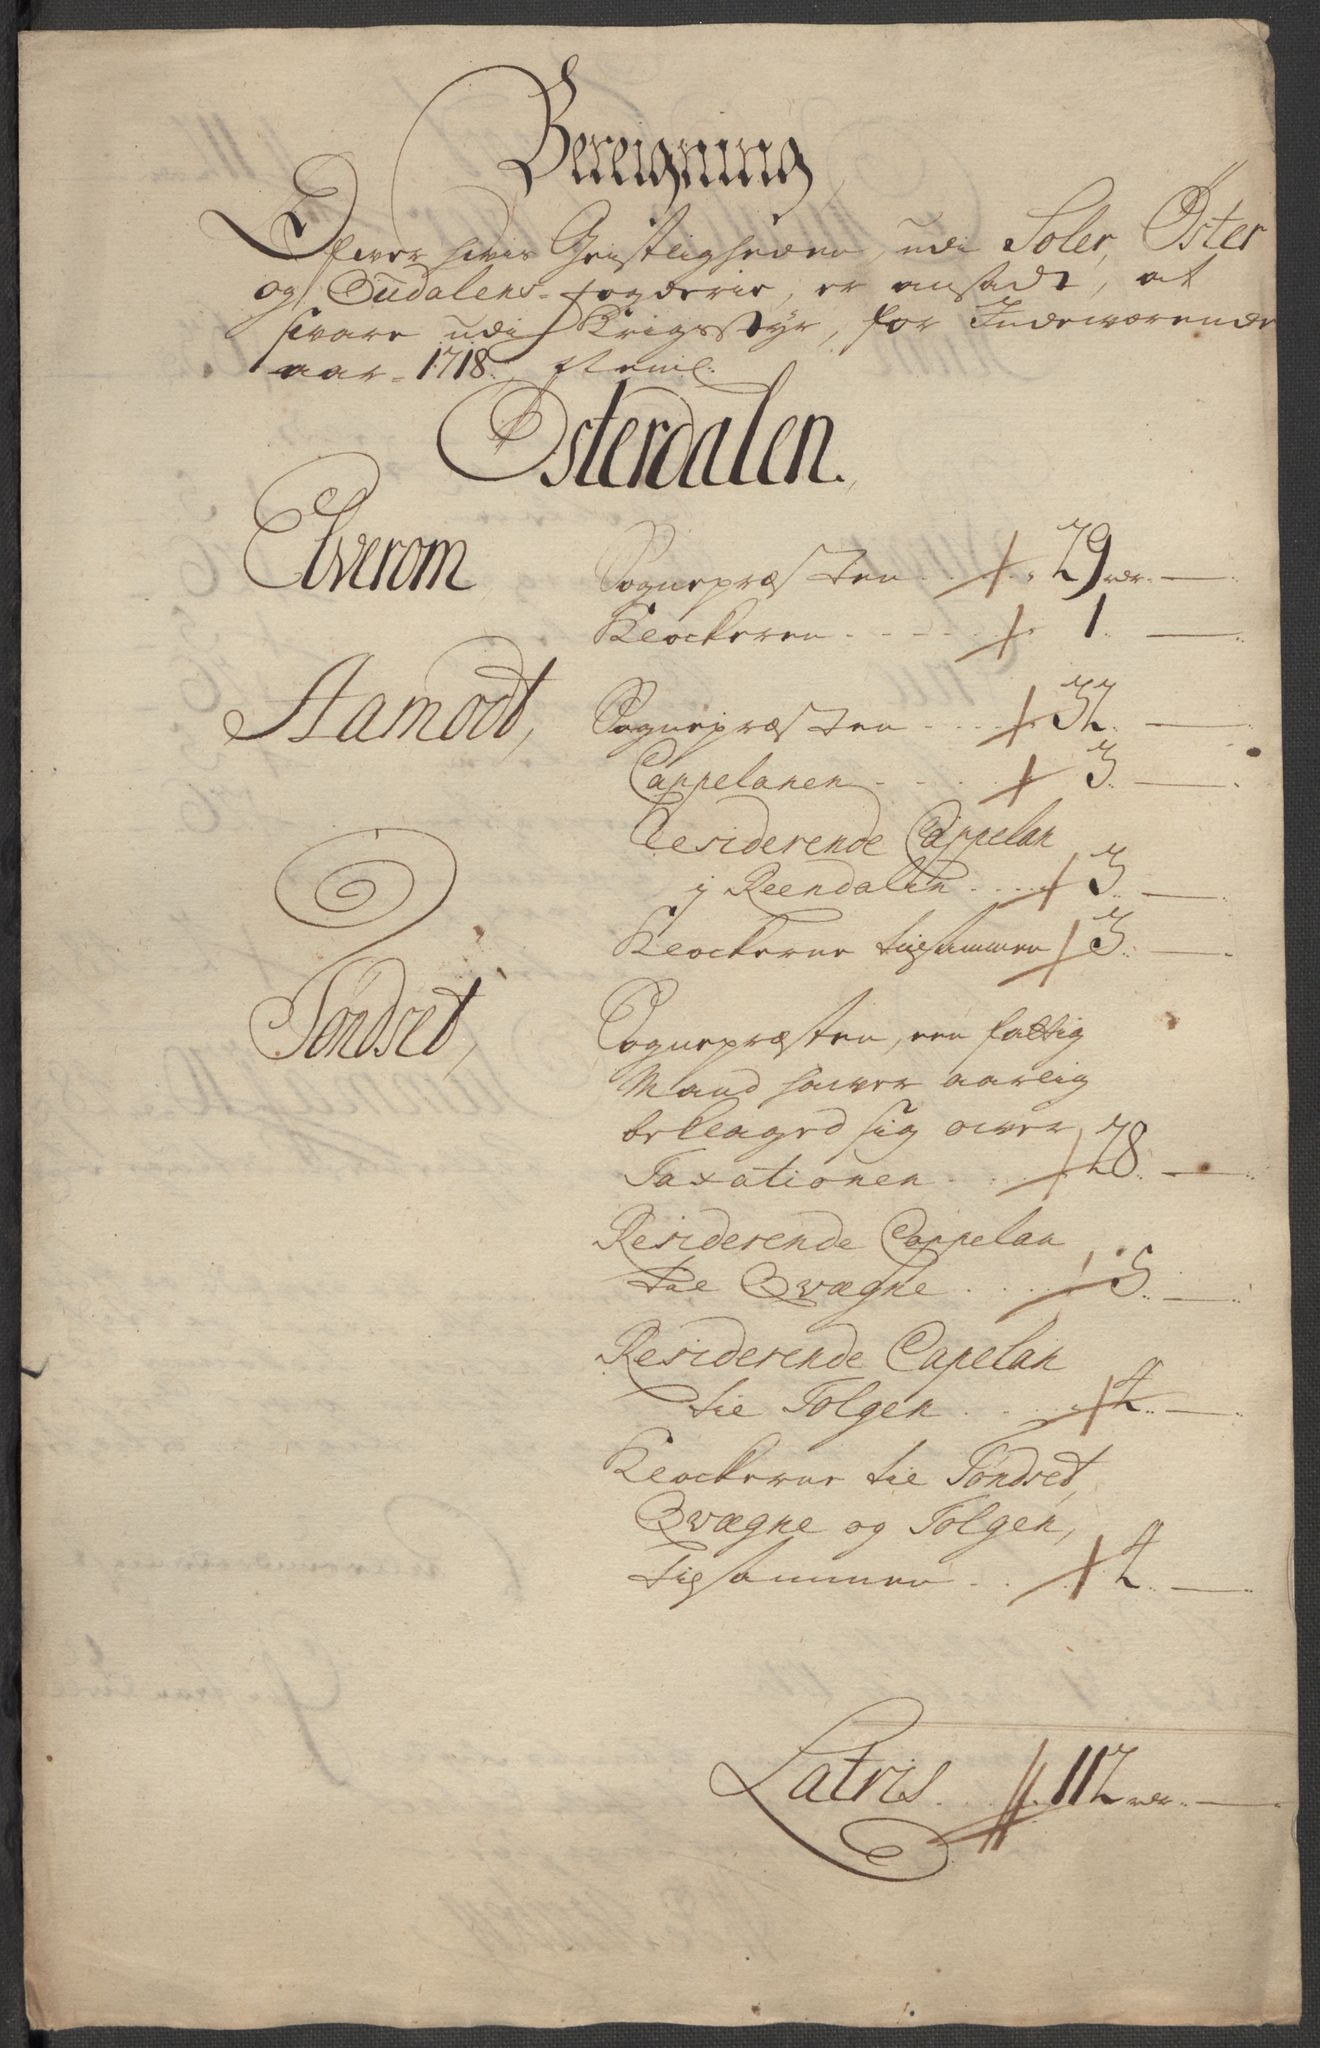 Bereigning
Ofwer hvis Geistligheden, udi Soler, Øster
og Gudalens fogderie, er ansadt, at
svare udi Krigsstyr, for Indeværende
aar 1718. Neml:
Østerdalen.
Elverom, Sognepræsten . . 29 rdr. —
Klockeren . . . . 1. —
Aamodt, Sognepræsten . . . 32. —
Cappelanen . . . . 3. —
Residerende Cappelan
i Reendalen . . . . 3. —
Klockerne tilsammen 3. —
Tøndset, Sognepræsten, een fattig
Mand hawer aarlig
beklaged sig ower
Taxationen . . . 28. —
Residerende Cappelan
til Qvægne . . . . 5. —
Residerende Capelan
til Tolgen . . . . 4. —
Klockerne til Tøndset,
Qvægne og Tolgen,
tilsammen . . . 4. —
Latris . . . 112 rdr. —